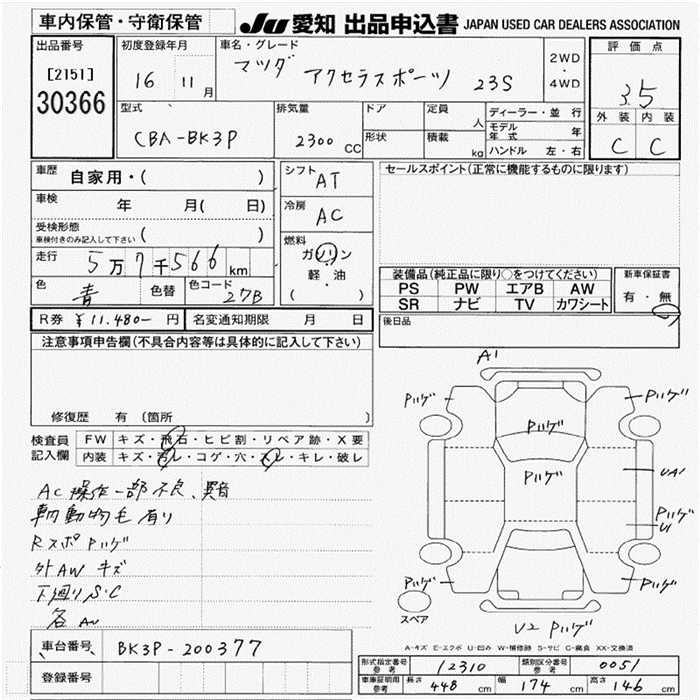 車内保管・守衛保管
JU 愛知 出品申込書 JAPAN USED CAR DEALERS ASSOCIATION
出品番号
[2151]
30366
初度登録年月
16 11月
車名・グレード
マツダ アクセラスポーツ 23S
2WD
・
4WD
評価点
3.5
外装 内装
C C
型式
CBA-BK3P
排気量
2300 CC
ドア
形状
定員 人
積載 kg
ディーラー・並行
モデル年式 年
ハンドル 左・右
車歴 自家用・( )
車検 年 月( 日)
受検形態
車検付きのみ記入して下さい ( )
走行 5万7千566 km
色 青 色替 色コード 27B
シフト AT
冷房 AC
燃料
ガソリン
軽・油
( )
セールスポイント(正常に機能するものに限ります)
装備品(純正品に限り○をつけてください)
PS PW エアB AW
SR ナビ TV カワシート
新車保証書
有・無
後日品
R券 ¥11.480- 円 名変通知期限 月 日
注意事項申告欄(不具合内容等は具体的に記入して下さい)
修復歴 有 (箇所 )
検査員記入欄
FW キズ・飛石・ヒビ割・リペア跡・X要
内装 キズ・汚レ・コゲ・穴・スレ・キレ・破レ
AC操作一部不良、異音
車内動物毛有り
Rスポ Pハゲ
外AW キズ
下廻り S・C
各AU
A1
Pハゲ
Pハゲ
Pハゲ
Pハゲ
UA1
Pハゲ
U1
Pハゲ
Pハゲ
スペア
U2 Pハゲ
A-キズ E-エクボ U-凹み W-補修跡 S-サビ C-腐食 XX-交換済
車台番号 BK3P-200377
登録番号
形式指定番号 参考 12310 類別区分番号 参考 0051
車庫証明用 参考 長さ 448 cm 幅 174 cm 高さ 146 cm